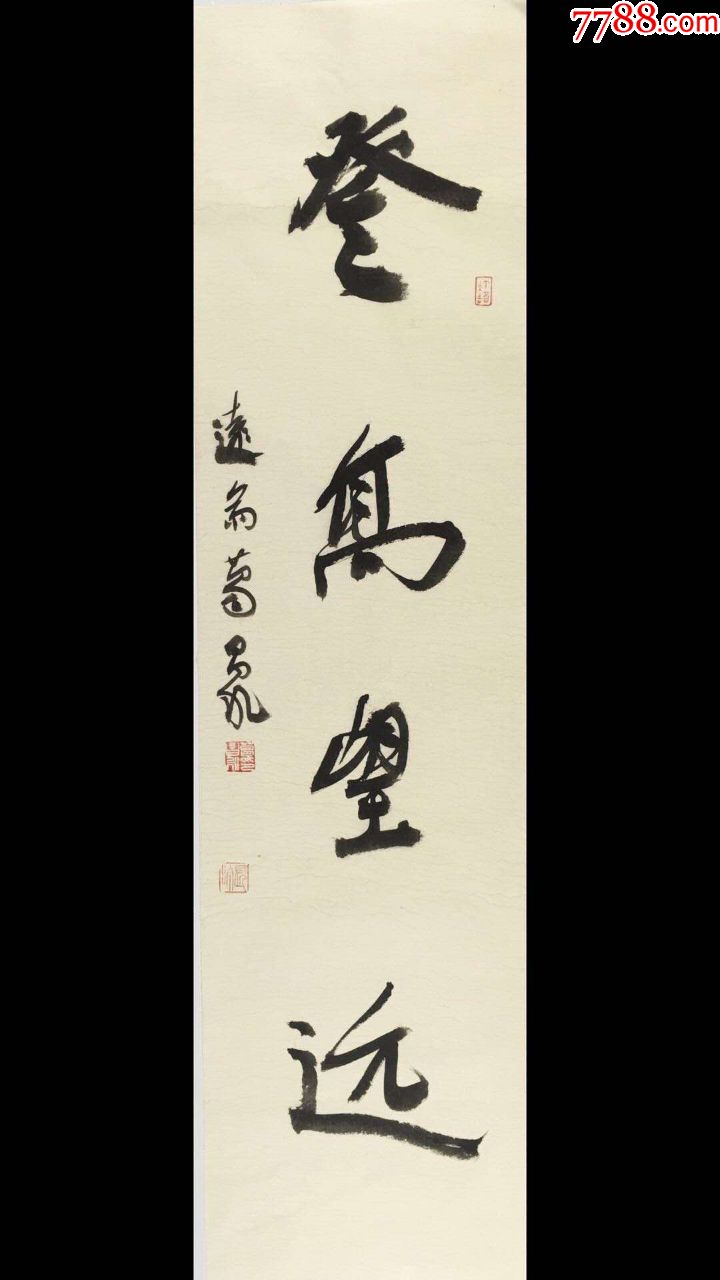 7788.com
登高望远
遠翁葛